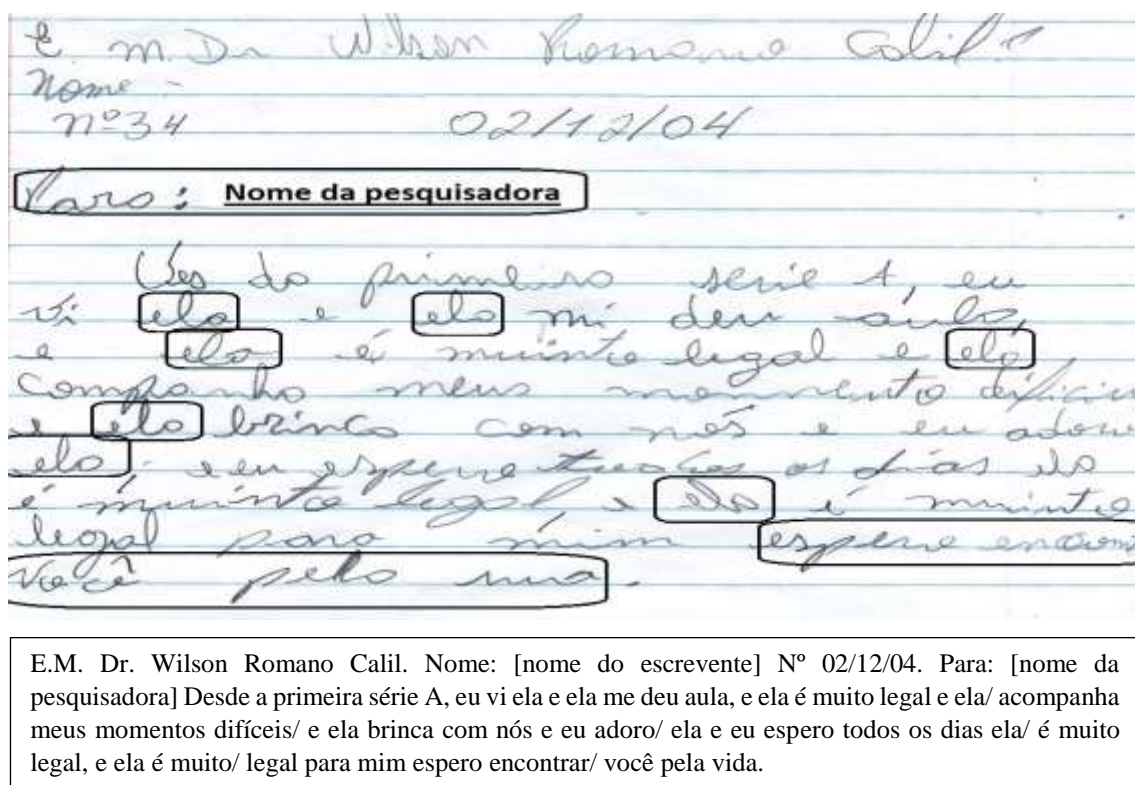 E. M. Dr Wilson Romano Calil
Nome -
nº 34 02/12/04
Para: Nome da pesquisadora
da primeira serie A, eu
vi ela e ela mi deu aula,
e ela é muinto legal e ela
companha meus momento dificiu
e ela brinca com nós e eu adoru
ela. e eu espero os dias ela
é muinto legal, e ela é muinto
legal para mim espero
você pela
E.M. Dr. Wilson Romano Calil. Nome: [nome do escrevente] Nº 02/12/04. Para: [nome da
pesquisadora] Desde a primeira série A, eu vi ela e ela me deu aula, e ela é muito legal e ela/ acompanha
meus momentos difíceis/ e ela brinca com nós e eu adoro/ ela e eu espero todos os dias ela/ é muito
legal, e ela é muito/ legal para mim espero encontrar/ você pela vida.